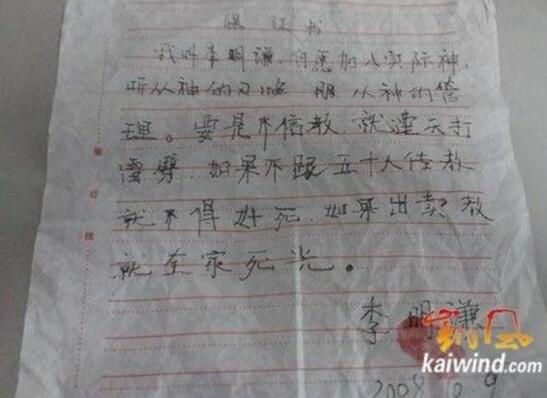 保证书
我叫李明谦，自愿加入实际神，
听从神的 服从神的管
理。要是不信教，就遭天打
雷劈，如果不跟五十人传教
就不得好死，如果出卖教
就全家死光。
李明谦
2008.10.9
装订线
kaiwind.com